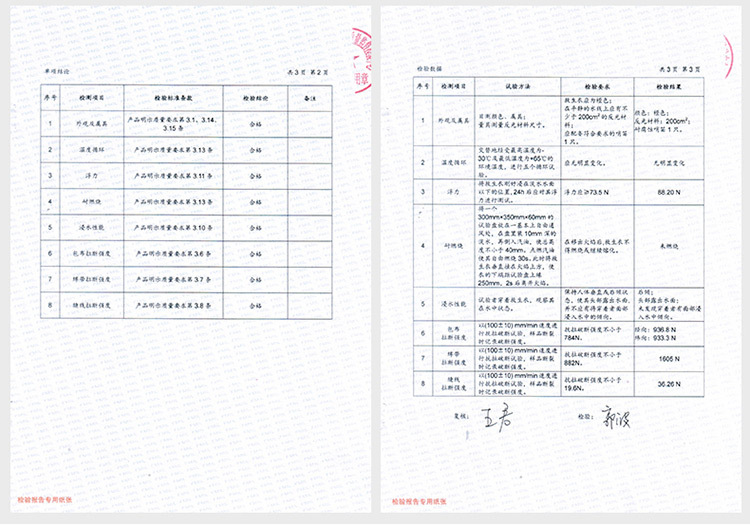 单项结论
共 3 页 第 2 页
序号 检测项目 检验标准条款 检验结论 备注
1 外观及属具 产品明示质量要求第 3.1、3.14、
3.15 条 合格
2 温度循环 产品明示质量要求第 3.13 条 合格
3 浮力 产品明示质量要求第 3.11 条 合格
4 耐燃烧 产品明示质量要求第 3.13 条 合格
5 浸水性能 产品明示质量要求第 3.10 条 合格
6 包布拉断强度 产品明示质量要求第 3.6 条 合格
7 绑带拉断强度 产品明示质量要求第 3.7 条 合格
8 缝线拉断强度 产品明示质量要求第 3.8 条 合格
检验报告专用纸张
检验数据
共 3 页 第 3 页
序号 检测项目 试验方法 检验要求 检验结果
1 外观及属具
目测颜色、属具;
量具测量反光材料尺寸。
救生衣应为橙色;
在平静的水线上应有不
少于 200cm²的反光材
料;
应配备符合要求的哨笛
1 只。
颜色:橙色;
反光材料:200cm²;
耐腐蚀哨笛 1 只。
2 温度循环
交替地经受最高温度为-
30℃及最低温度为+65℃的
环境温度,进行五个循环试
验。
应无明显变化。
无明显变化。
3 浮力
将救生衣刚好浸在淡水水面
以下的位置,24h 后应对其浮
力进行测试。
浮力应≥73.5 N
88.20 N
4 耐燃烧
将一个
300mm×350mm×60mm 的
试验盘放在一基本上自由通
风处,在盘里装 10mm 深的
淡水,再倒入汽油,使总高
度不小于 40mm。点燃汽油
使其自由燃烧 30s。此时将救
生衣垂直放在火焰上方,使
衣的下端距试验盘上缘
250mm,2s 后离开火焰。
在移出火焰后,救生衣不
得燃烧或继续熔化。
未燃烧
5 浸水性能
试验者穿着救生衣,观察其
在水中状态。
保持人体垂直或后倾状
态,使其头部露出水面,
并不应有将穿着者面部
浸入水中的倾向。
后倾;
头部露出水面;
未发现穿着者有面部浸
入水中的倾向。
6 包布
拉断强度
以(100±10) mm/min 速度进
行抗拉破断试验,样品断裂
时记录破断强度。
抗拉破断强度不小于
784N。
经向:936.8 N
纬向:933.3 N
7 绑带
拉断强度
以(100±10) mm/min 速度进
行抗拉破断试验,样品断裂
时记录破断强度。
抗拉破断强度不小于
882N。
1605 N
8 缝线
拉断强度
以(100±10) mm/min 速度进
行抗拉破断试验,样品断裂
时记录破断强度。
抗拉破断强度不小于
19.6N。
36.26 N
复核:
检验:
检验报告专用纸张